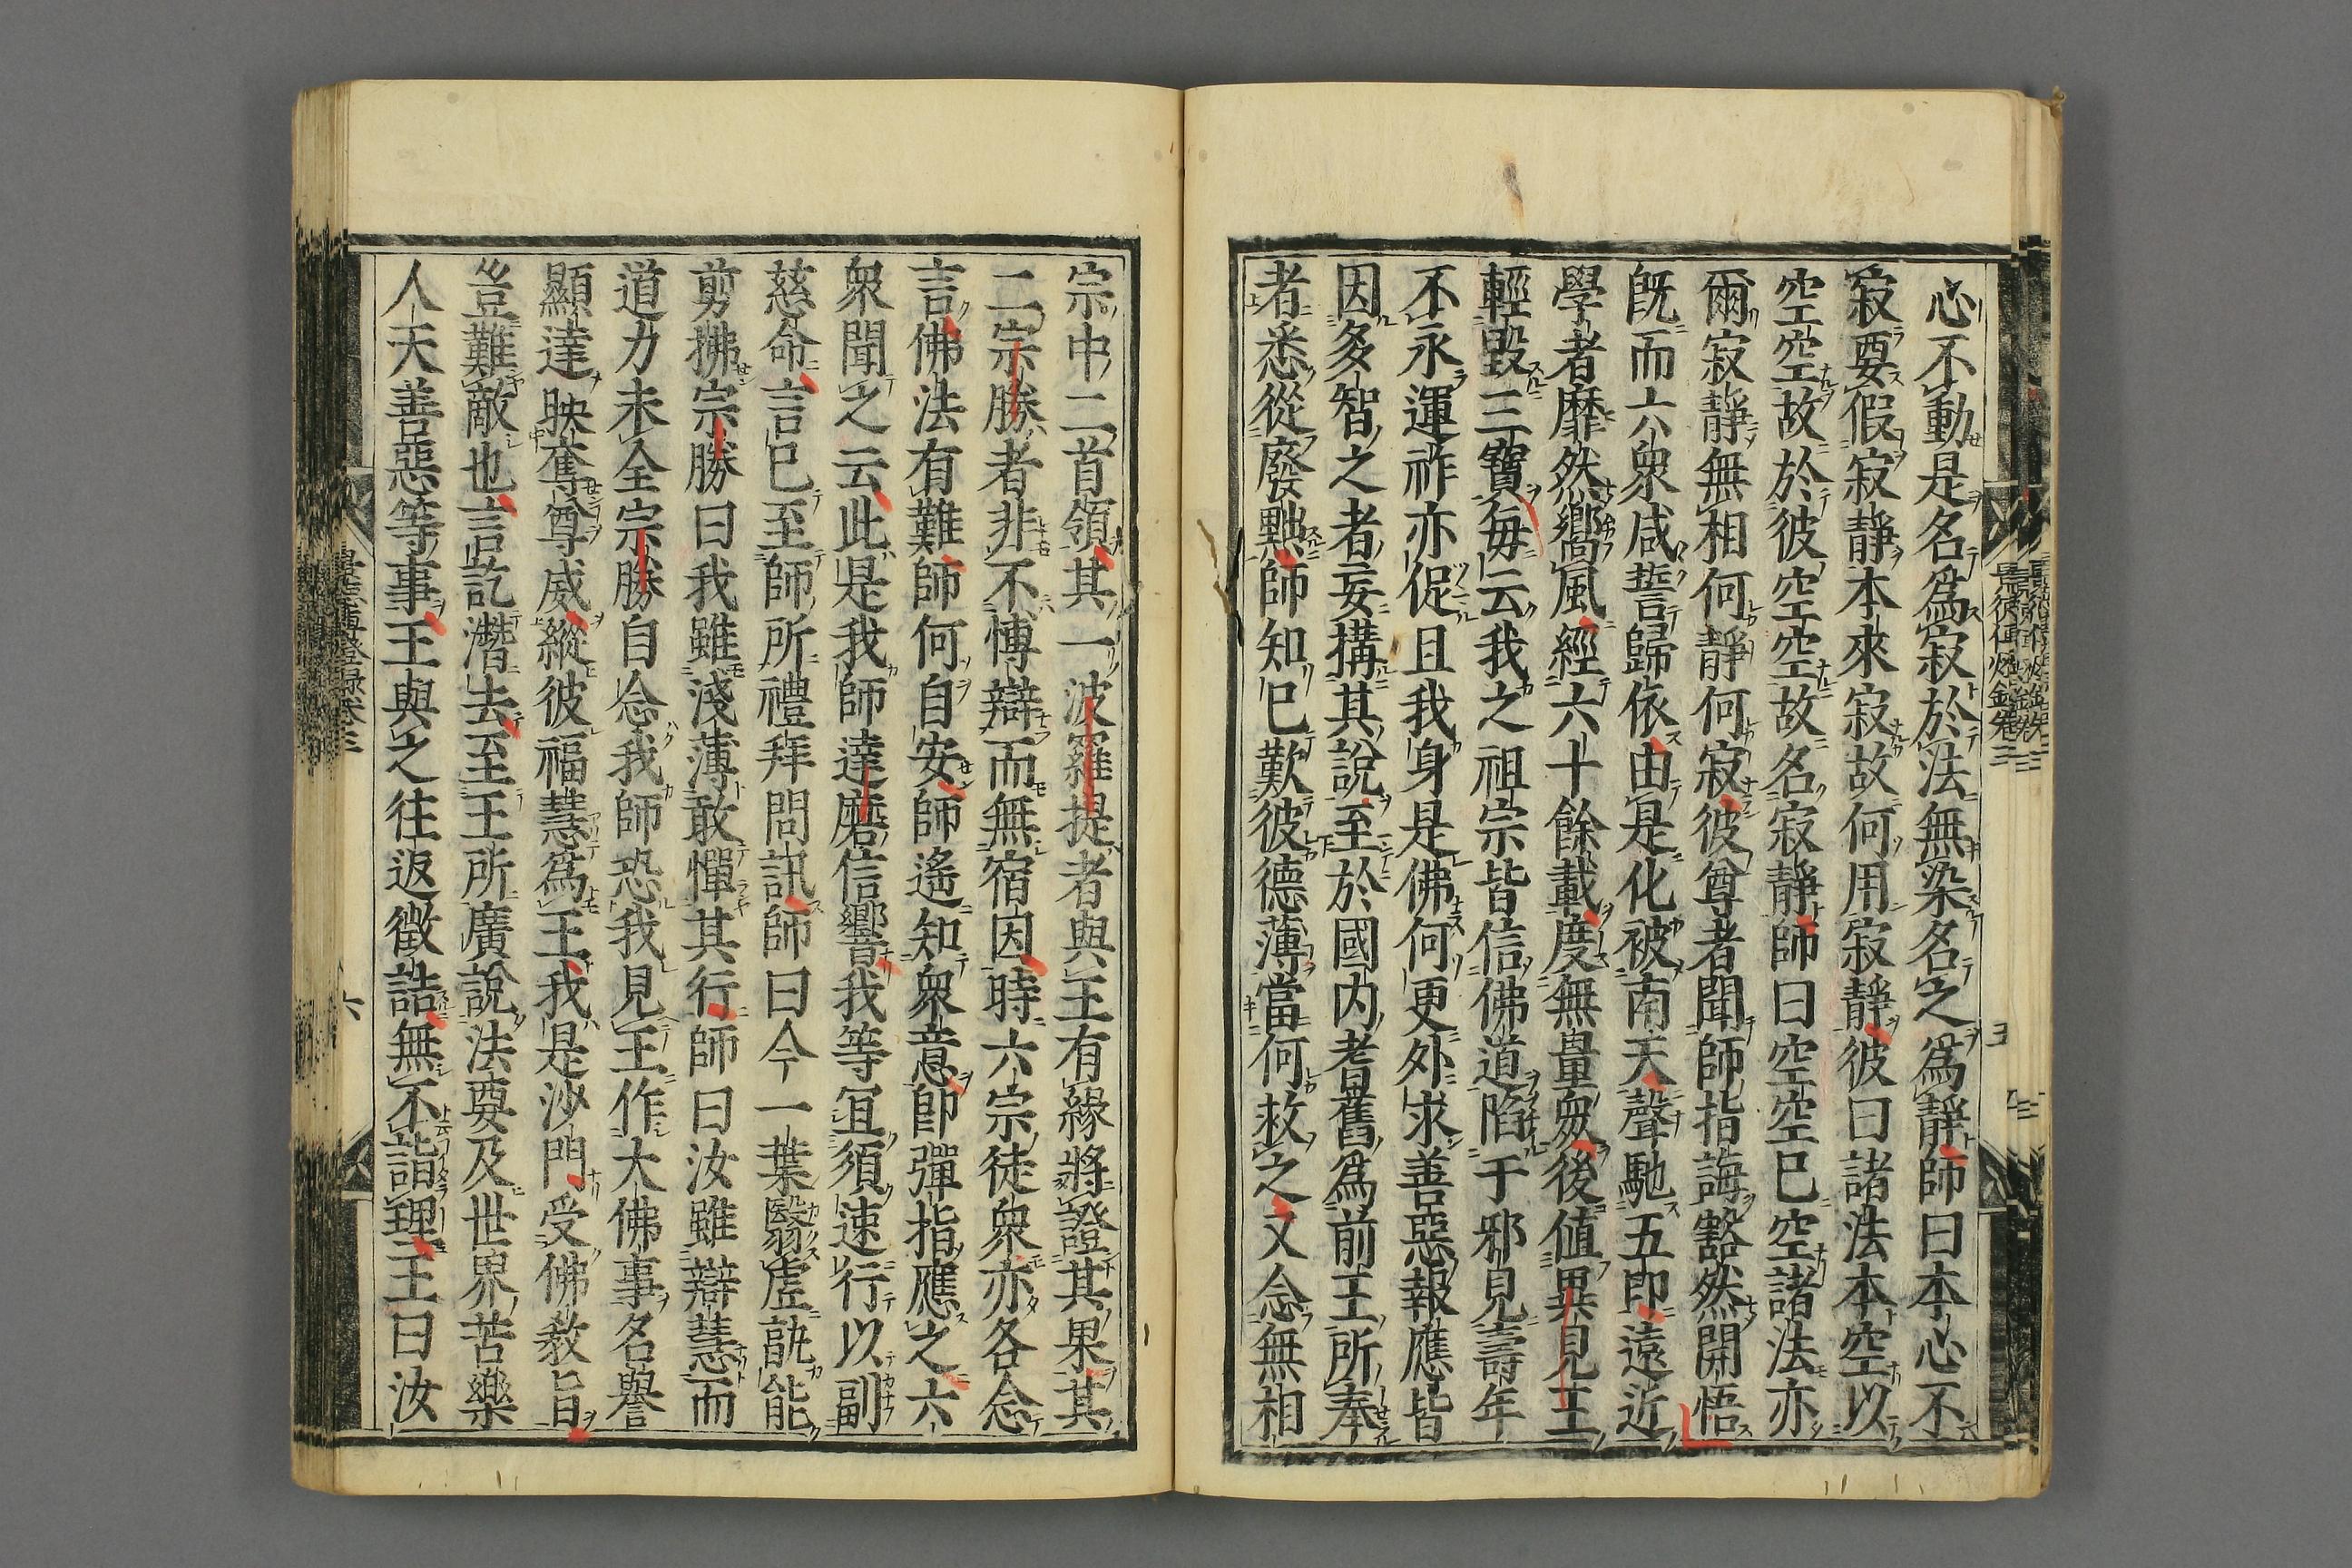 心不動是名爲寂於法無染名之爲靜師曰本心不
寂要假寂靜本來寂故何用寂靜彼曰諸法本空以
空空故於彼空空故名寂靜師曰空空已空諸法亦
爾寂靜無相何靜何寂彼尊者聞師指誨豁然開悟
既而六衆咸誓歸依由是化被南天聲馳五印遠近
學者靡然嚮風經六十餘載度無量衆後値異見王
輕毀三寶每云我之祖宗皆信佛道陷于邪見壽年
不永運祚亦促且我身是佛何更外求善惡報應皆
因多智之者妄搆其說至於國内耆舊爲前王所奉
者悉從廢黜師知已歎彼德薄當何救之又念無相
宗中二首領其一波羅提者與王有緣將證其果其
二宗勝者非不愽辯而無宿因時六宗徒衆亦各念
言佛法有難師何自安師遙知衆意卽彈指應之六
衆聞之云此是我師達磨信響我等宜須速行以副
慈命言已至師所禮拜問訊師曰今一葉翳虛孰能
剪拂宗勝曰我雖淺薄敢憚其行師曰汝雖辯慧而
道力未全宗勝自念我師恐我見王作大佛事名譽
顯達映奪尊威縱彼福慧爲王我是沙門受佛敎旨
豈難敵也言訖潛去至王所廣說法要及世界苦樂
人天善惡等事王與之往返徵詰無不詣理王曰汝
景德傳燈録卷三
六